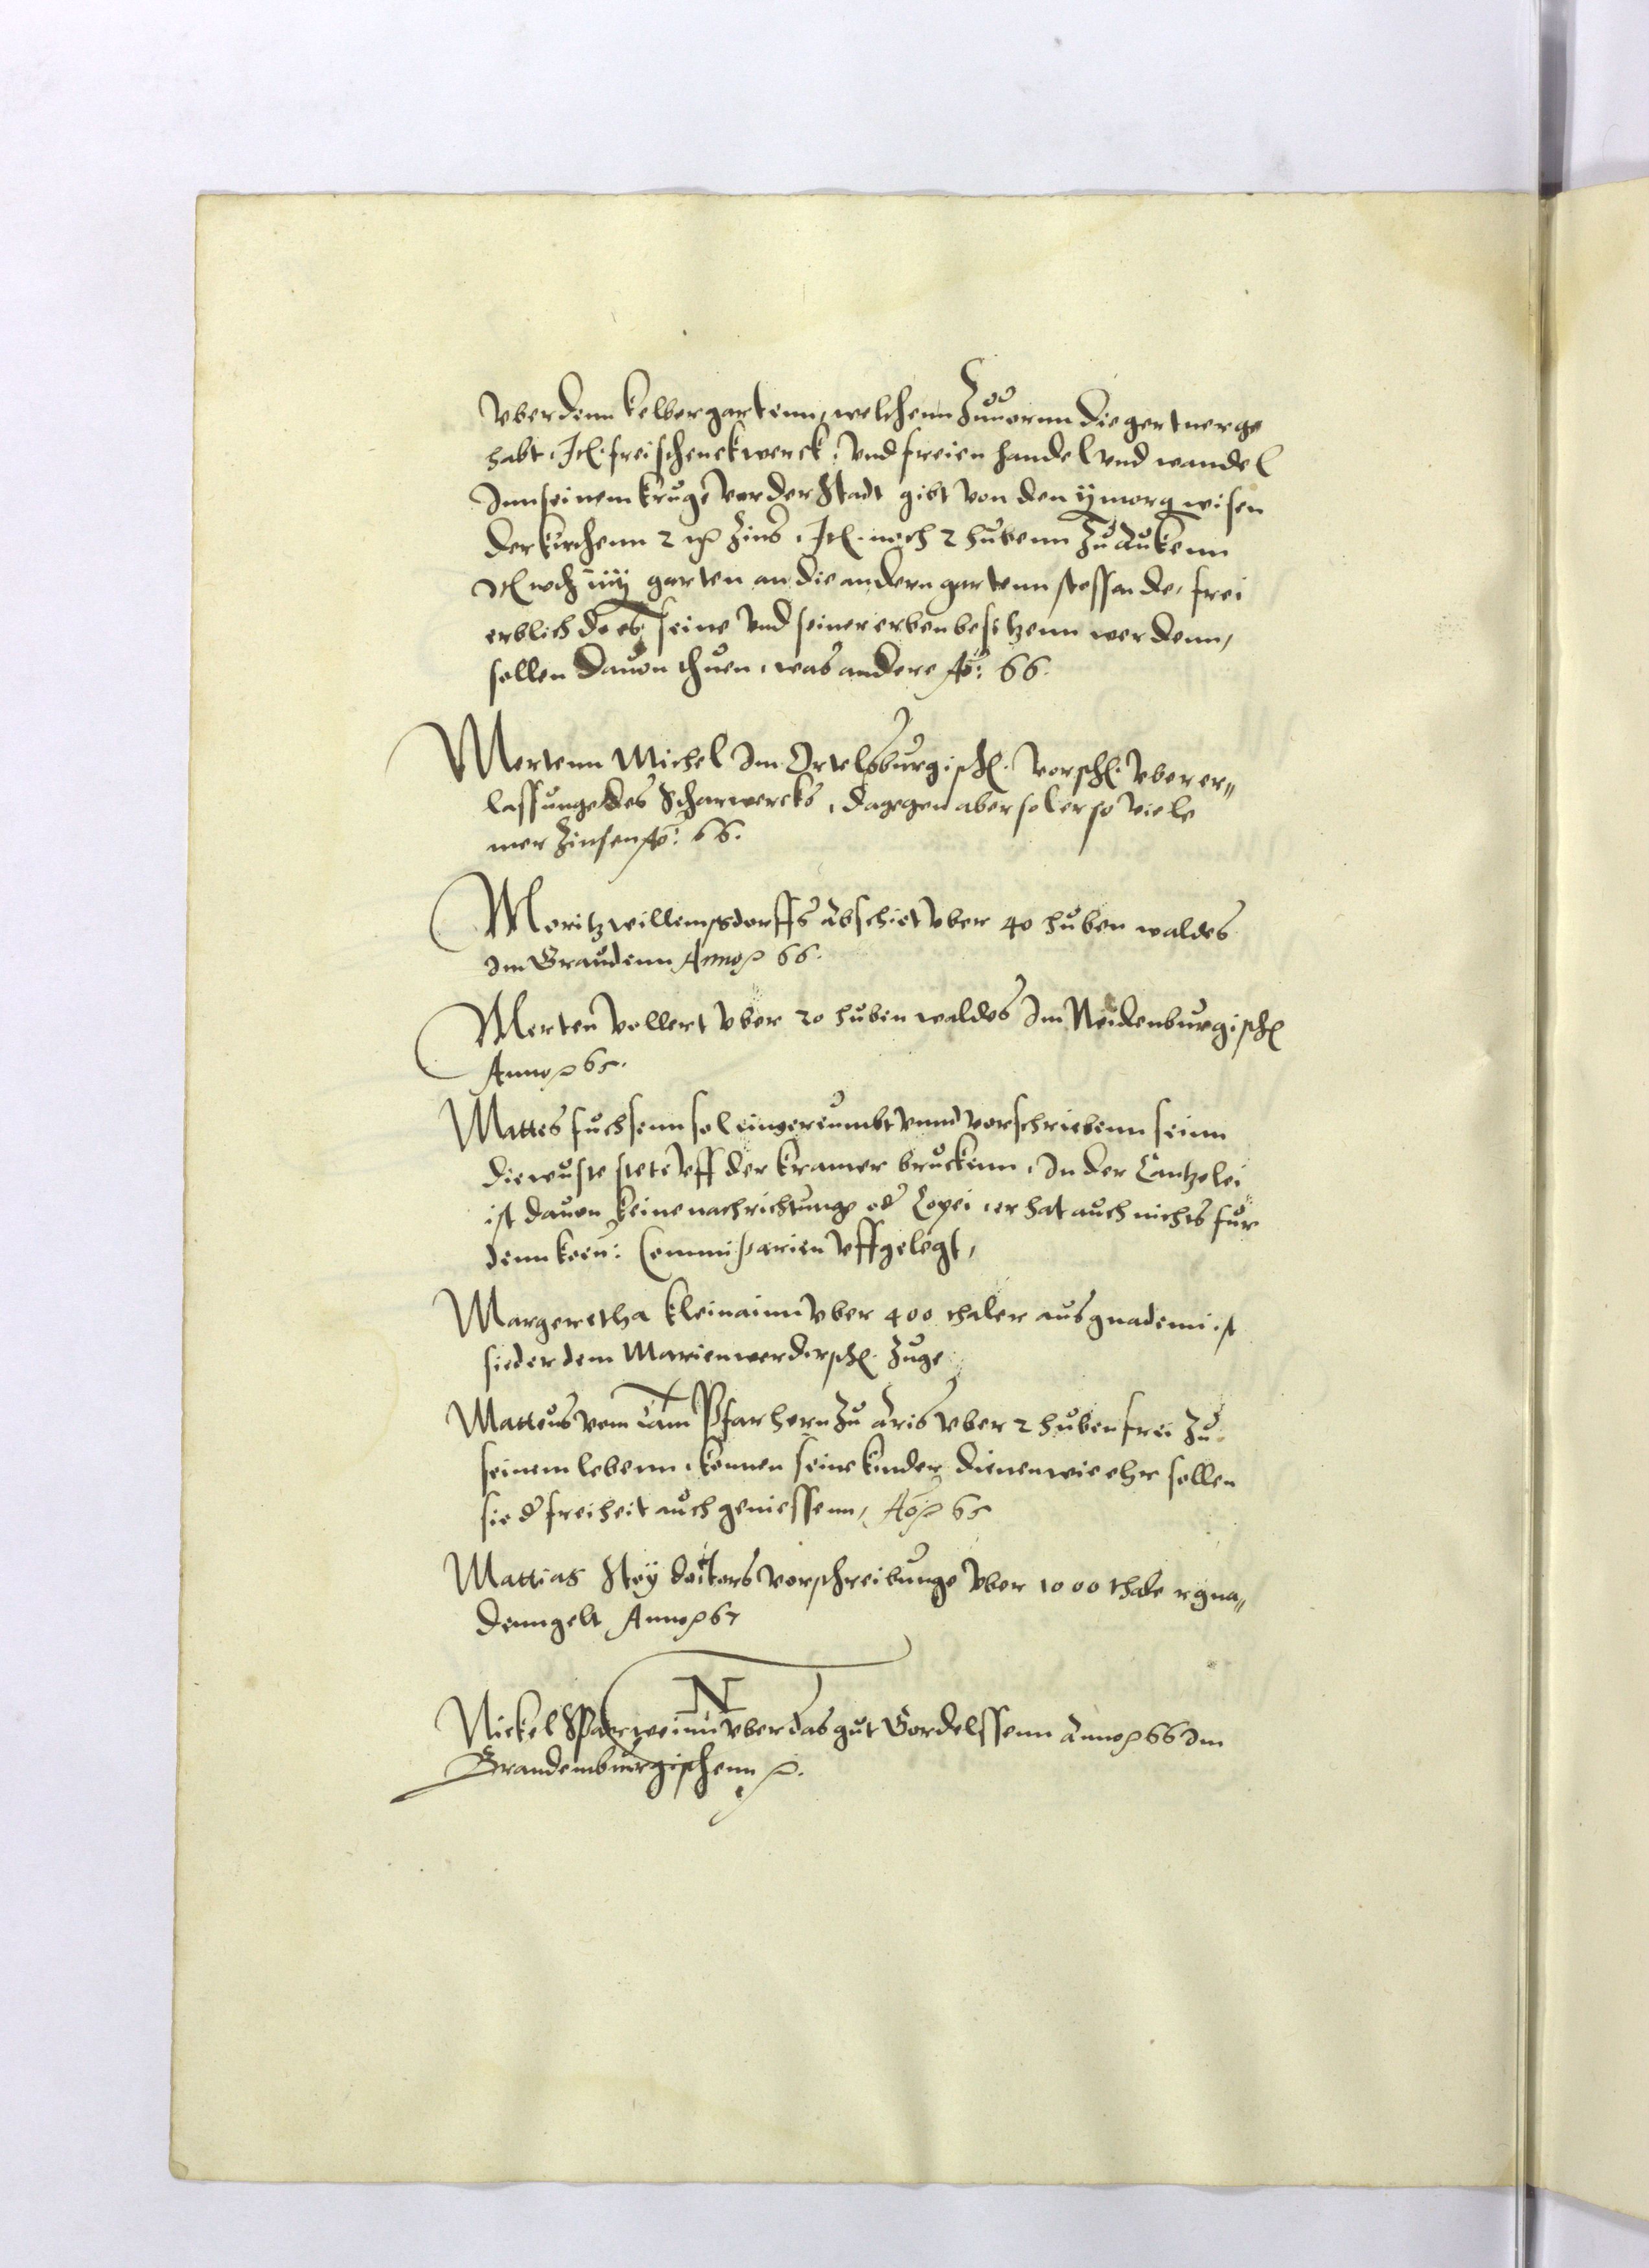 vber denn kelbergartenn, welchenn zuuornn die gertner ge
habt. Itl. frei schenckwerck, vnd freien handel vnd wandel
Inn seinem kruge vor der Stadt gibt von den ij morg wisen
der kirchenn 2 mk zins. Itl. noch 2 hubenn zu Aukenn
Itl noch iiij garten an die andern gartenn stossende, frei
erblich do es seine vnd seiner erben besitzenn werdenn,
sollen dauon thuen, was andere Ao: 66.
Mertenn Michel Im Ortelsburgisch. vorsch. vber er„
lassunge des Scharwercks, dagegen aber sol er so viele
mer zinsen Ao: 66.
Moritz willemssdorffs abschiet vber 40 huben waldes
Im Graudenn Anno 66.
Merten vollert vber 20 huben waldes Im Neidenburgisch
Anno 65.
Mattes fuchsenn sol eingereumbt vnnd vorschriebenn seinn
die wuste stete vff der kramer bruckenn, In der Cantzelei
ist dauon keine nachrichtunge od Copei, er hat auch nichts fur
denn koen: Commissarien vffgelegt,
Margeretha kleinainn vber 400 thaler aus gnadenn ist
sieder dem Marienwerdersch. zuge
Matteus vom Tam Pfarhern zu Aris vber 2 huben frei zu
seinem lebenn, konnen seine kinder dienen wie ehr sollen
sie d freiheit auch geniessenn, Ao 65
Mattias Stoy doctors vorschreibunge vber 1000 thaler gna„
denngelt Anno 67
N
Nickel Sparweinn vber das gut Gordelssenn Anno 66 Im
Brandenburgischenn